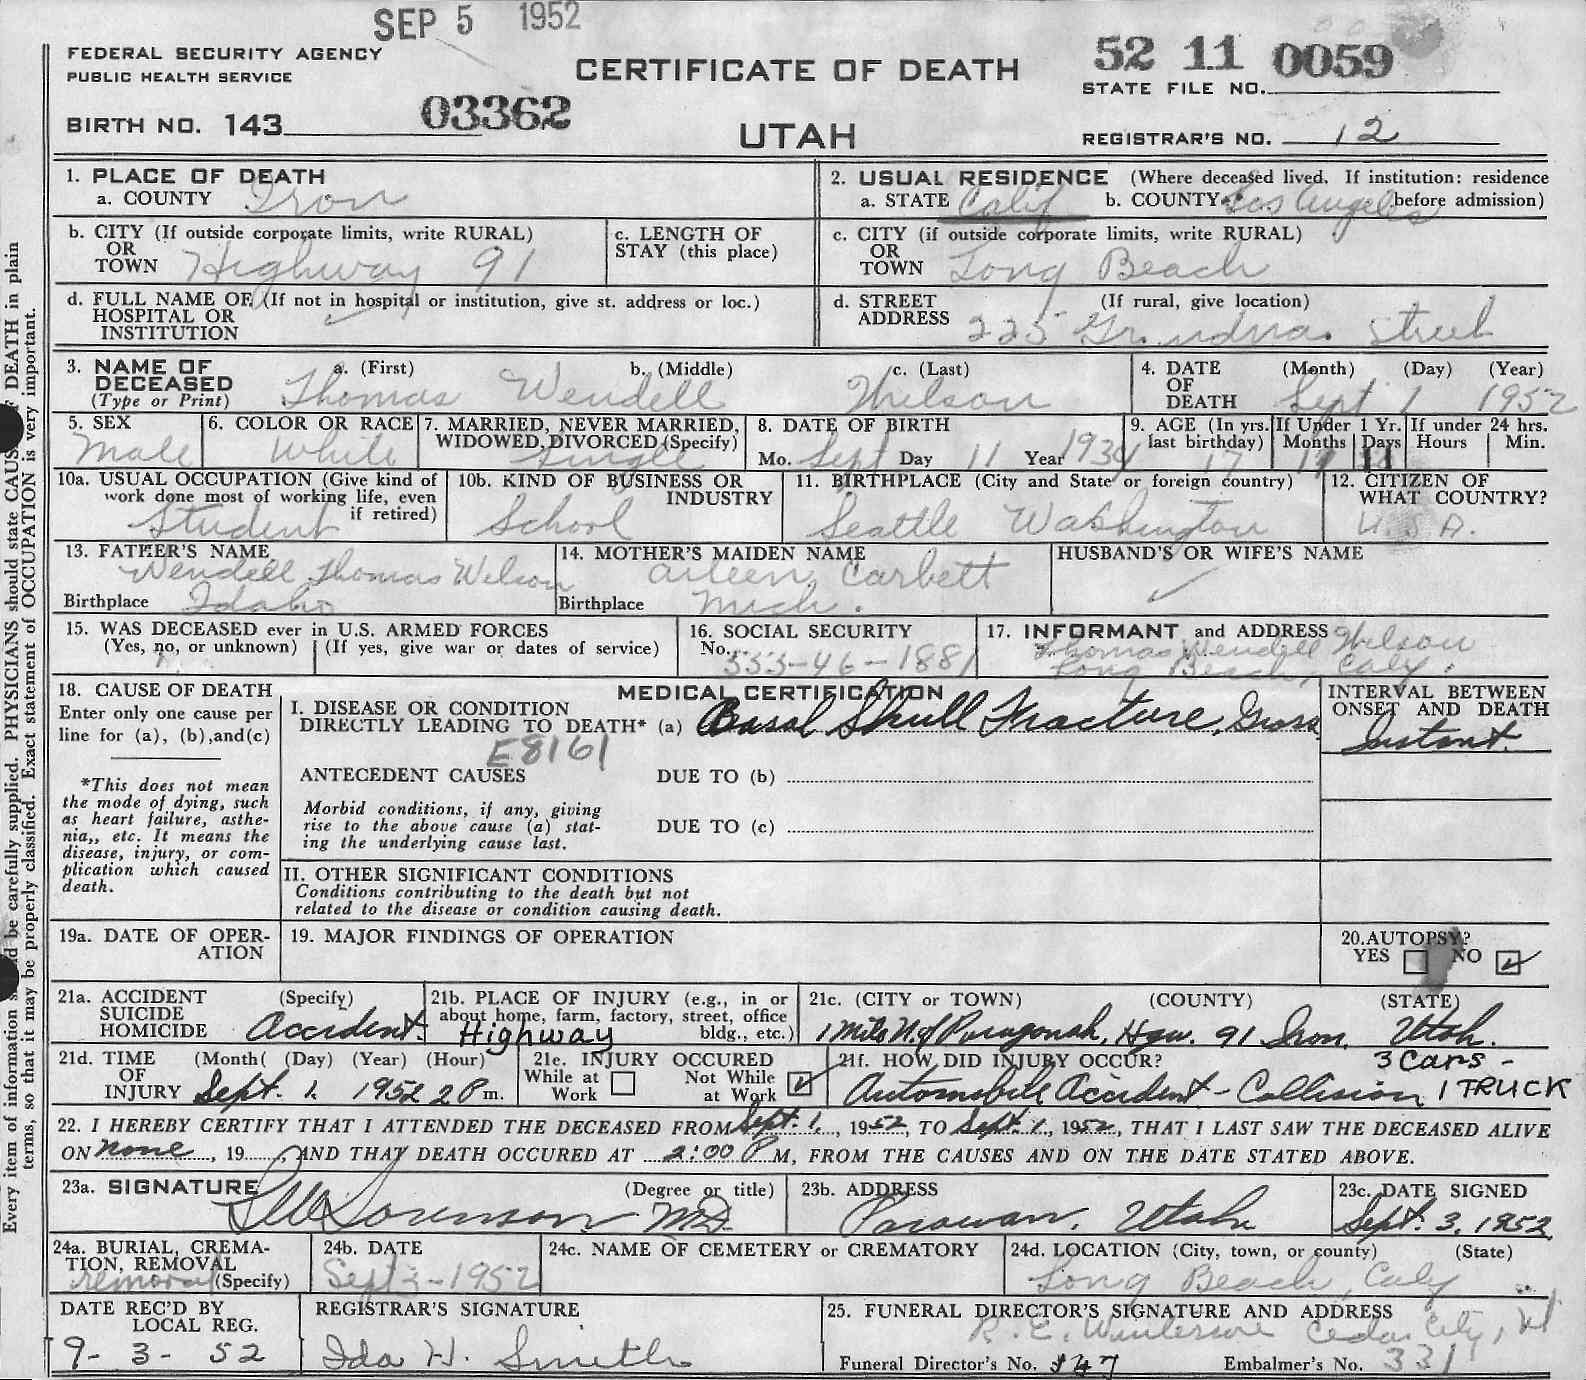 SEP 5 1952
FEDERAL SECURITY AGENCY
PUBLIC HEALTH SERVICE
CERTIFICATE OF DEATH
52 11 0059
STATE FILE NO.
BIRTH NO. 143 03362
UTAH
REGISTRAR'S NO. 12
1. PLACE OF DEATH
a. COUNTY Iron
2. USUAL RESIDENCE (Where deceased lived. If institution: residence before admission)
a. STATE Calif b. COUNTY Los Angeles
b. CITY (If outside corporate limits, write RURAL)
OR
TOWN Highway 91
c. LENGTH OF
STAY (this place)
c. CITY (if outside corporate limits, write RURAL)
OR
TOWN Long Beach
d. FULL NAME OF (If not in hospital or institution, give st. address or loc.)
HOSPITAL OR
INSTITUTION
d. STREET (If rural, give location)
ADDRESS 225 Street
3. NAME OF
DECEASED
(Type or Print)
a. (First) b. (Middle) c. (Last)
Thomas Wendell Wilson
4. DATE
OF
DEATH
(Month) (Day) (Year)
Sept 1 1952
5. SEX
Male
6. COLOR OR RACE
White
7. MARRIED, NEVER MARRIED,
WIDOWED, DIVORCED (Specify)
Single
8. DATE OF BIRTH
Mo. Sept Day 11 Year 1934
9. AGE (In yrs. last birthday)
17
If Under 1 Yr.
Months Days
If under 24 hrs.
Hours Min.
10a. USUAL OCCUPATION (Give kind of
work done most of working life, even
if retired)
Student
10b. KIND OF BUSINESS OR
INDUSTRY
School
11. BIRTHPLACE (City and State or foreign country)
Seattle Washington
12. CITIZEN OF
WHAT COUNTRY?
U.S.A.
13. FATHER'S NAME
Wendell Thomas Wilson
Birthplace Idaho
14. MOTHER'S MAIDEN NAME
Aileen Carbett
Birthplace Mich.
HUSBAND'S OR WIFE'S NAME
15. WAS DECEASED ever in U.S. ARMED FORCES
(Yes, no, or unknown) (If yes, give war or dates of service)
16. SOCIAL SECURITY
No. 553-46-1881
17. INFORMANT and ADDRESS
Thomas Wendell Wilson
Long Beach, Caly.
18. CAUSE OF DEATH
Enter only one cause per
line for (a), (b), and (c)
*This does not mean
the mode of dying, such
as heart failure, asthe-
nia,, etc. It means the
disease, injury, or com-
plication which caused
death.
MEDICAL CERTIFICATION
I. DISEASE OR CONDITION
DIRECTLY LEADING TO DEATH* (a) Basal Skull Fracture, Gross
E8161
ANTECEDENT CAUSES DUE TO (b)
Morbid conditions, if any, giving
rise to the above cause (a) stat-
ing the underlying cause last.
DUE TO (c)
II. OTHER SIGNIFICANT CONDITIONS
Conditions contributing to the death but not
related to the disease or condition causing death.
INTERVAL BETWEEN
ONSET AND DEATH
Instant.
19a. DATE OF OPER-
ATION
19. MAJOR FINDINGS OF OPERATION
20. AUTOPSY?
YES NO
21a. ACCIDENT (Specify)
SUICIDE
HOMICIDE Accident.
21b. PLACE OF INJURY (e.g., in or
about home, farm, factory, street, office
bldg., etc.)
Highway
21c. (CITY or TOWN) (COUNTY) (STATE)
1 Mile N. of Paragonah, Hgw. 91 Iron. Utah.
21d. TIME (Month) (Day) (Year) (Hour)
OF
INJURY Sept. 1. 1952 2 P m.
21e. INJURY OCCURED
While at Work Not While at Work
21f. HOW DID INJURY OCCUR? 3 Cars -
Automobile Accident - Collision 1 TRUCK
22. I HEREBY CERTIFY THAT I ATTENDED THE DECEASED FROM Sept. 1, 1952, TO Sept. 1, 1952, THAT I LAST SAW THE DECEASED ALIVE
ON none, 19 AND THAT DEATH OCCURED AT 2:00 P M, FROM THE CAUSES AND ON THE DATE STATED ABOVE.
23a. SIGNATURE (Degree or title)
Sorenson MD.
23b. ADDRESS
Parowan, Utah
23c. DATE SIGNED
Sept. 3, 1952
24a. BURIAL, CREMA-
TION, REMOVAL
removal (Specify)
24b. DATE
Sept 3-1952
24c. NAME OF CEMETERY or CREMATORY
24d. LOCATION (City, town, or county) (State)
Long Beach, Caly
DATE REC'D BY
LOCAL REG.
9-3-52
REGISTRAR'S SIGNATURE
Ida H. Smith
25. FUNERAL DIRECTOR'S SIGNATURE AND ADDRESS
Cedar City, Ut
Funeral Director's No. 347 Embalmer's No. 331
Every item of information be carefully supplied. PHYSICIANS should state CAUSE OF DEATH in plain
terms, so that it may be properly classified. Exact statement of OCCUPATION is very important.